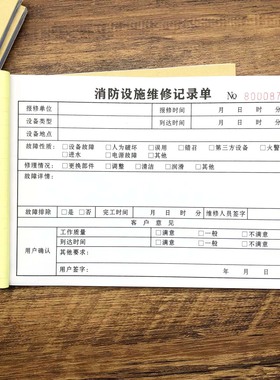 消防设施维修记录单 No 800087
报修单位 报修时间 月 日 时 分
设备类型 到达时间 月 日 时 分
设备地点
故障性质: □设备故障 □人为破坏 □误用 □错召 □第三方设备 □火警
□进水 □电源故障 □其他
修理情况: □更换部件 □调整 □清洁 □润滑 □其他
故障详情:
故障排除 □是 □否 完工时间 月 日 时 分 维修人员签字
客 户 意 见
用户确认 工作质量 □满意 □一般 □不满意
到达时间 □满意 □一般 □不满意
其他要求:
用户签字: 年 月 日